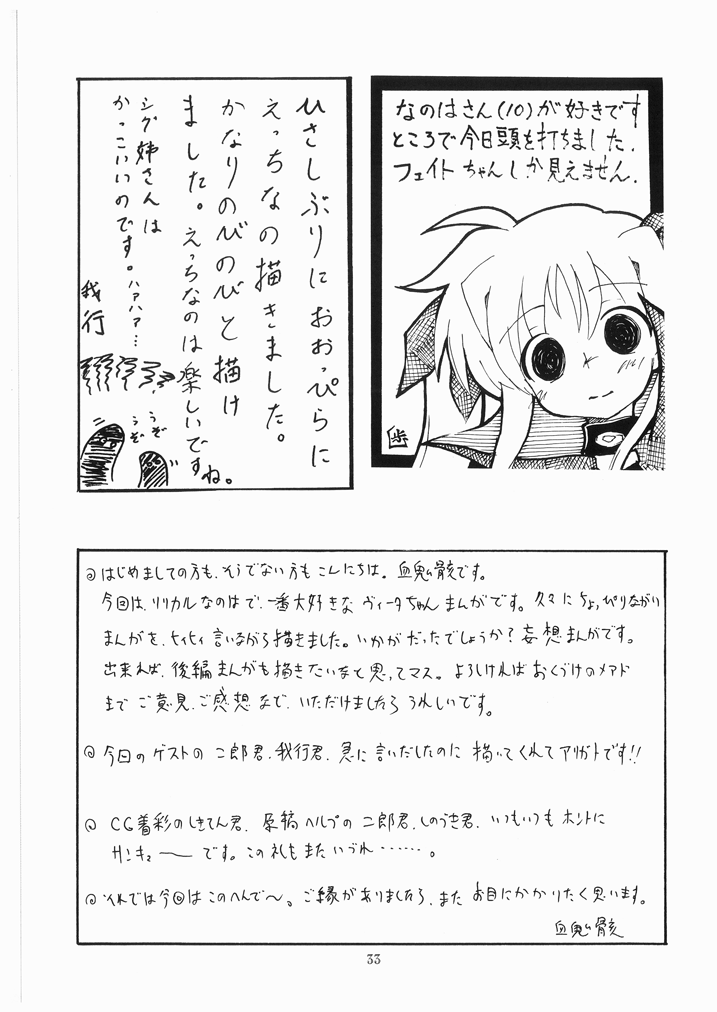 なのはさん(10)が好きです
ところで今日頭を打ちました.
フェイトちゃんしか見えません.
歩
ひさしぶりにおおっぴらに
えっちなの描きました。
かなりのびのびと描け
ました。えっちなのは楽しいです
ね。
シグ姉さんは
かっこいいのです。ハァハァ…
我行
うぞ
うぞ
◎はじめましての方も、そうでない方もこんにちは。血鬼骸です。
今回は、リリカルなのはで、一番大好きなヴィータちゃんまんがです。久々にちょっぴりながい
まんがを、ヒィヒィ言いながら描きました。いかがだったでしょうか?妄想まんがです。
出来れば、後編まんがも描きたいなと思ってマス。よろしければおくづけのメアド
まで ご意見、ご感想など、いただけましたら うれしいです。
◎今回のゲストの 二郎君、我行君、急に言いだしたのに 描いてくれてアリガトです!!
◎CG着彩のしきてん君、原稿ヘルプの二郎君、しのうき君、いつもいつもホントに
サンキュ〜〜です。この礼もまたいづれ……。
◎それでは今回はこのへんで〜。ご縁がありましたら、また お目にかかりたく思います。
血鬼骸
33